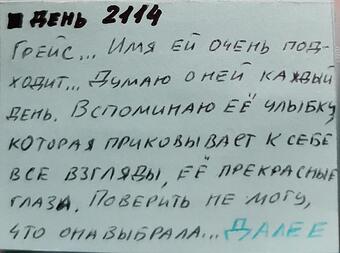 ДЕНЬ 2114
ГРЕЙС... ИМЯ ЕЙ ОЧЕНЬ ПОД-
ХОДИТ... ДУМАЮ О НЕЙ КАЖДЫЙ
ДЕНЬ. ВСПОМИНАЮ ЕЁ УЛЫБКУ,
КОТОРАЯ ПРИКОВЫВАЕТ К СЕБЕ
ВСЕ ВЗГЛЯДЫ, ЕЁ ПРЕКРАСНЫЕ
ГЛАЗА. ПОВЕРИТЬ НЕ МОГУ,
ЧТО ОНА ВЫБРАЛА... ДАЛЕЕ